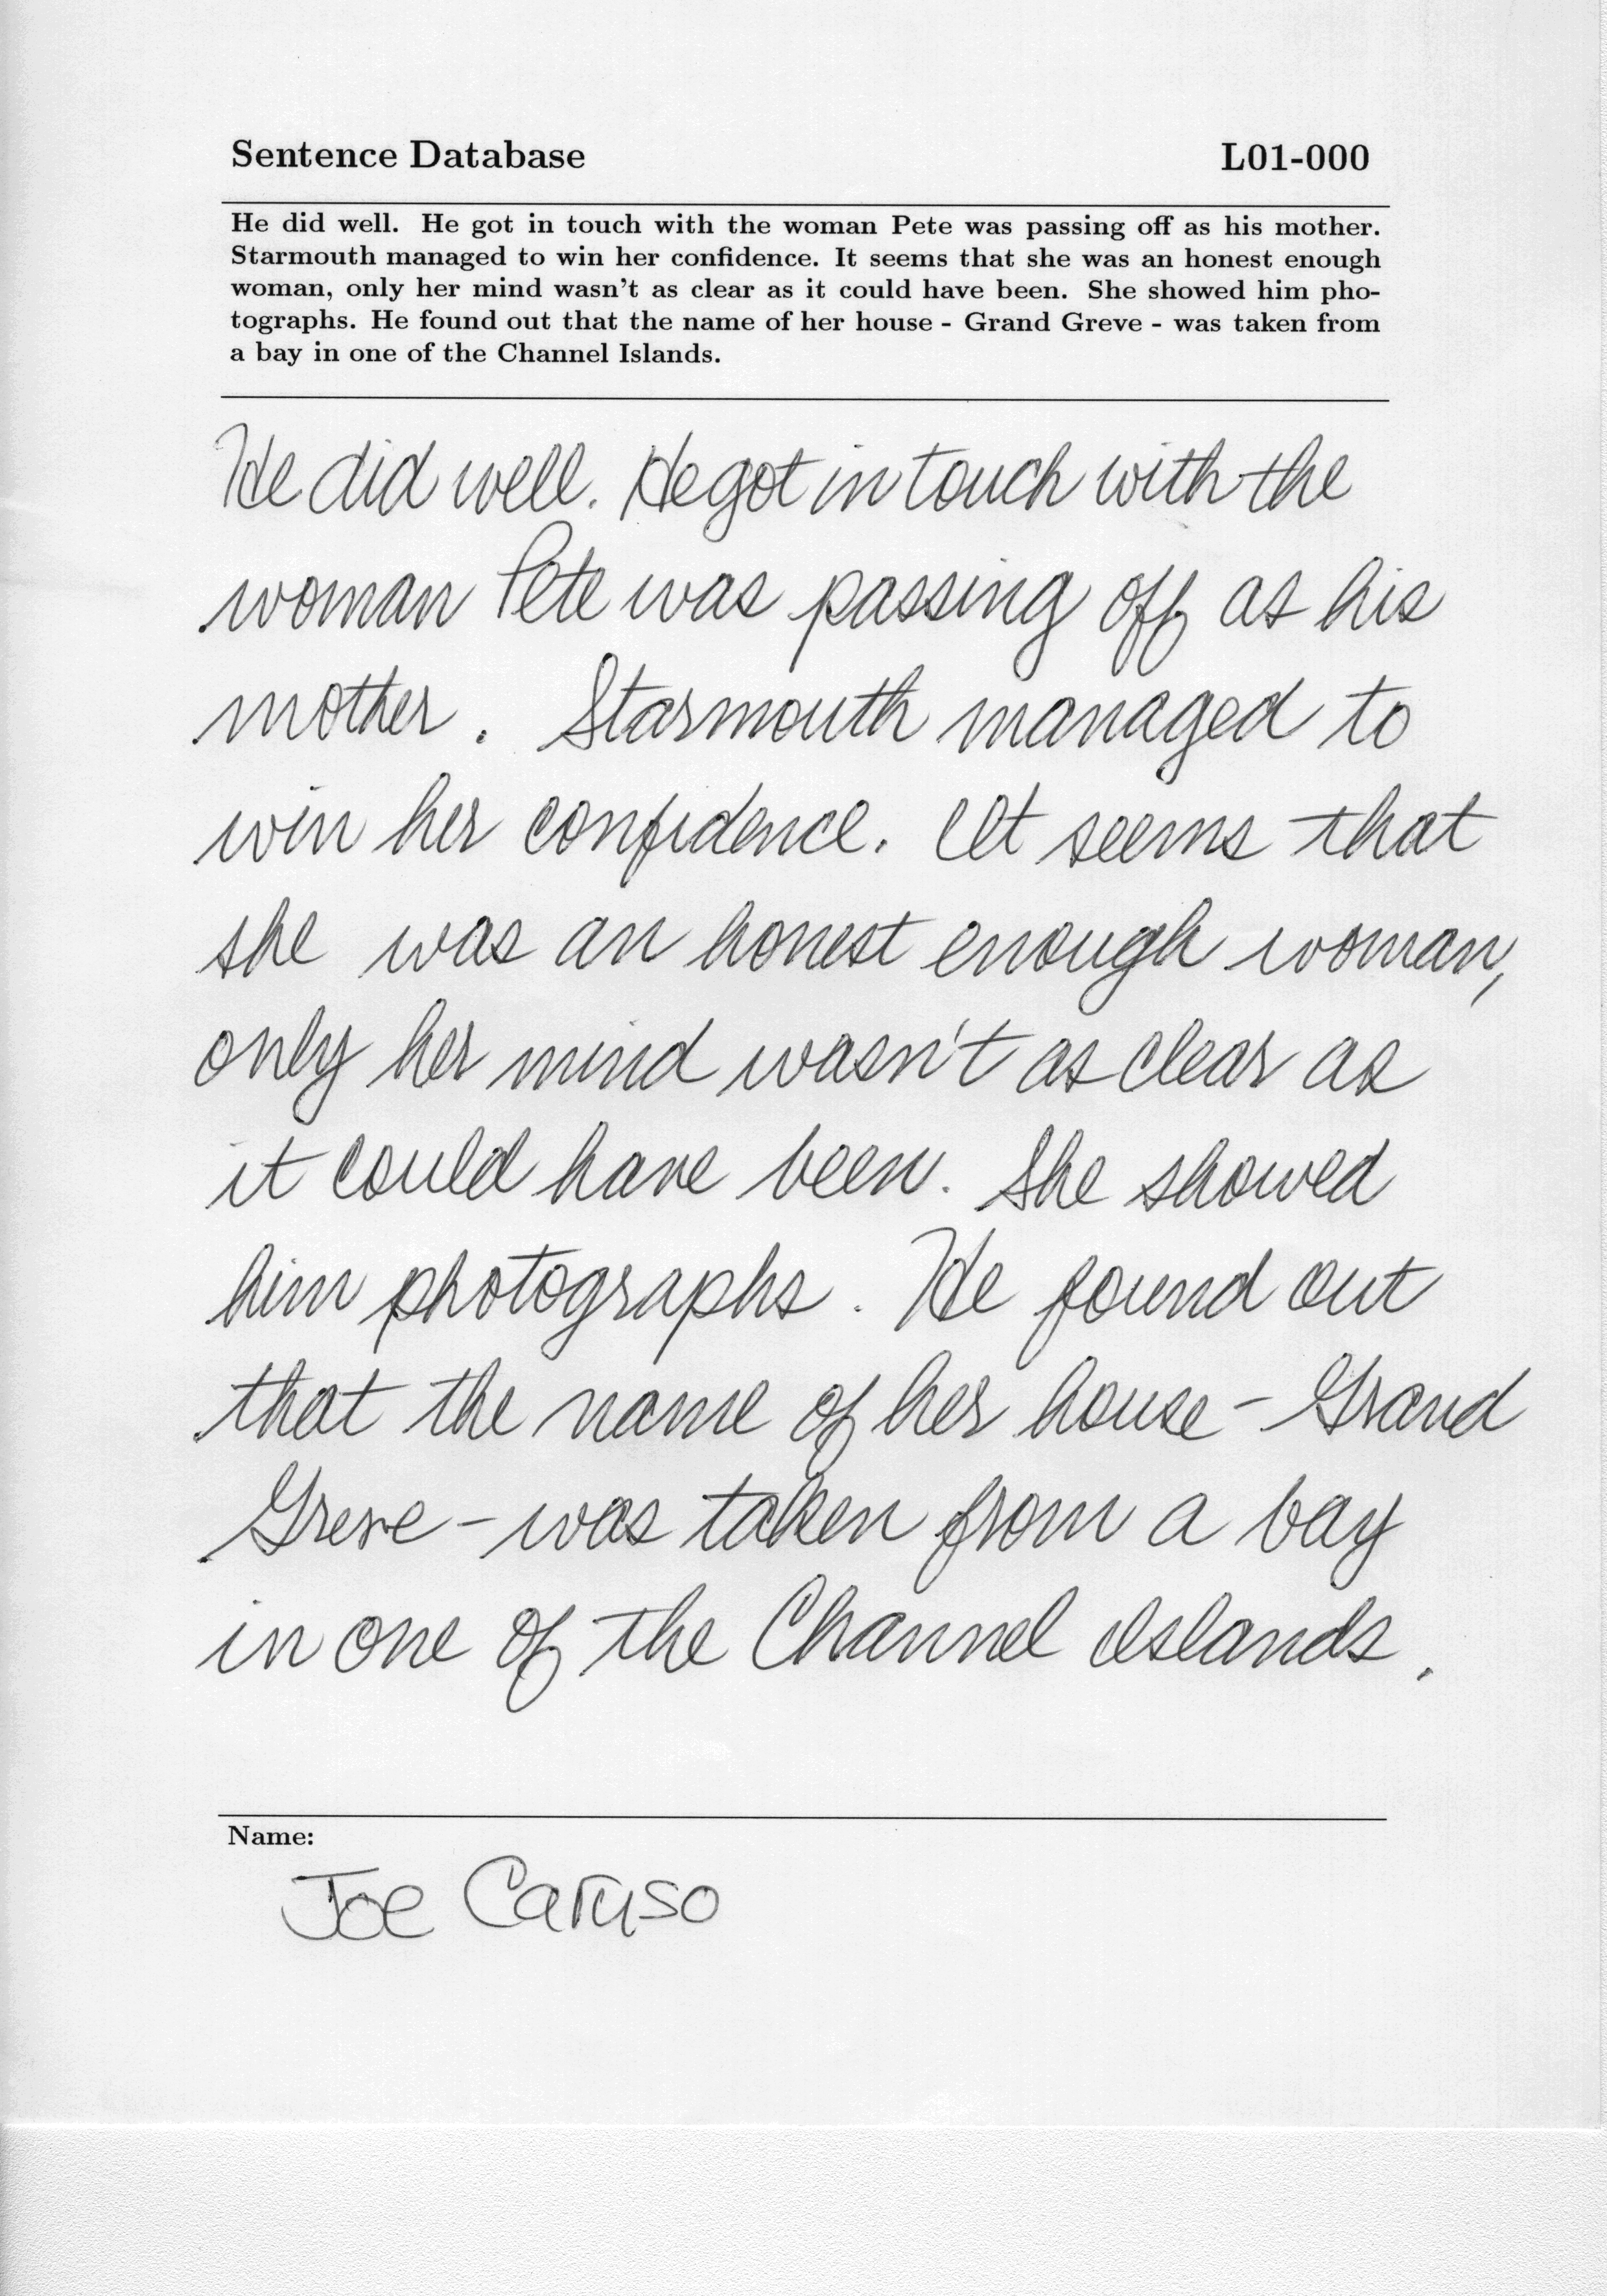 Sentence Database L01-000
He did well. He got in touch with the woman Pete was passing off as his mother.
Starmouth managed to win her confidence. It seems that she was an honest enough
woman, only her mind wasn't as clear as it could have been. She showed him pho-
tographs. He found out that the name of her house - Grand Greve - was taken from
a bay in one of the Channel Islands.
He did well. He got in touch with the
woman Pete was passing off as his
mother. Starmouth managed to
win her confidence. It seems that
she was an honest enough woman,
only her mind wasn't as clear as
it could have been. She showed
him photographs. He found out
that the name of her house - Grand
Greve - was taken from a bay
in one of the Channel Islands.
Name:
Joe Caruso